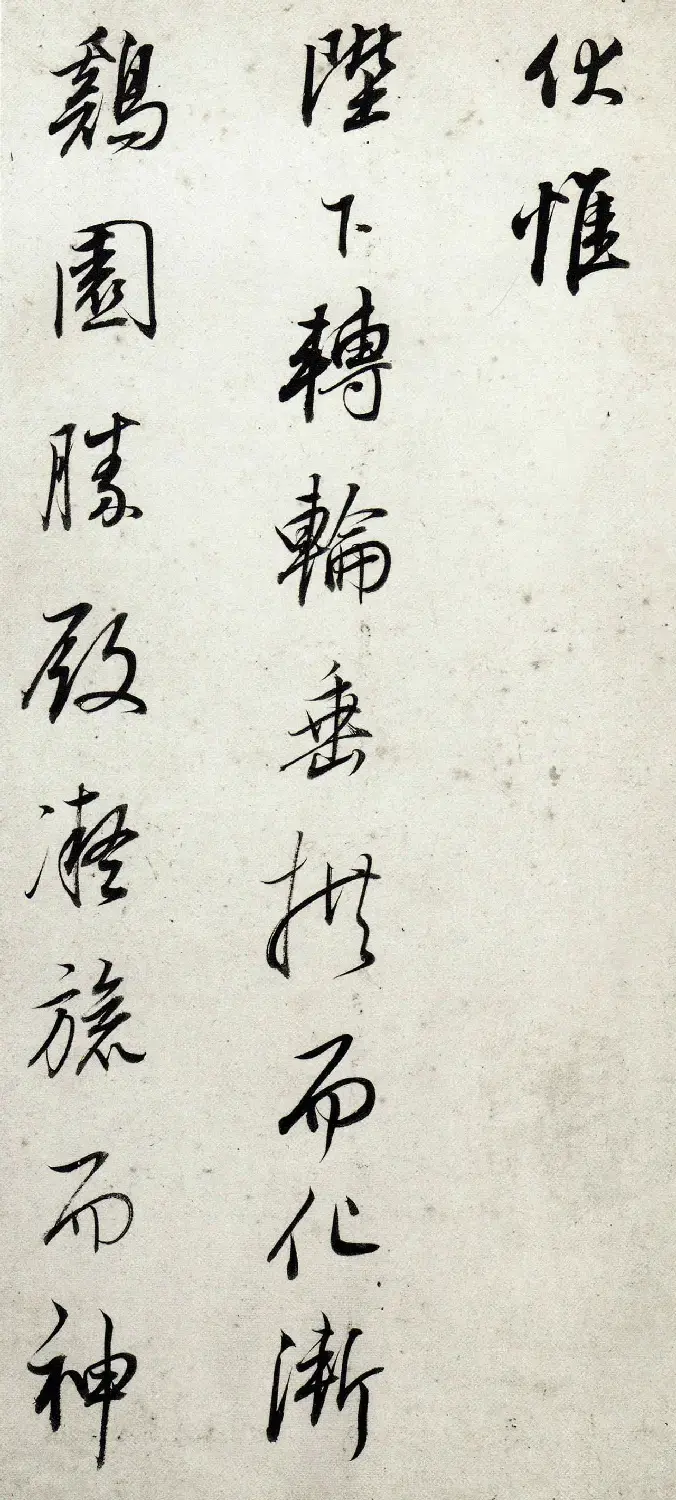 伏惟
陛下轉輪垂拱而化漸
鷄園勝殿凝旒而神